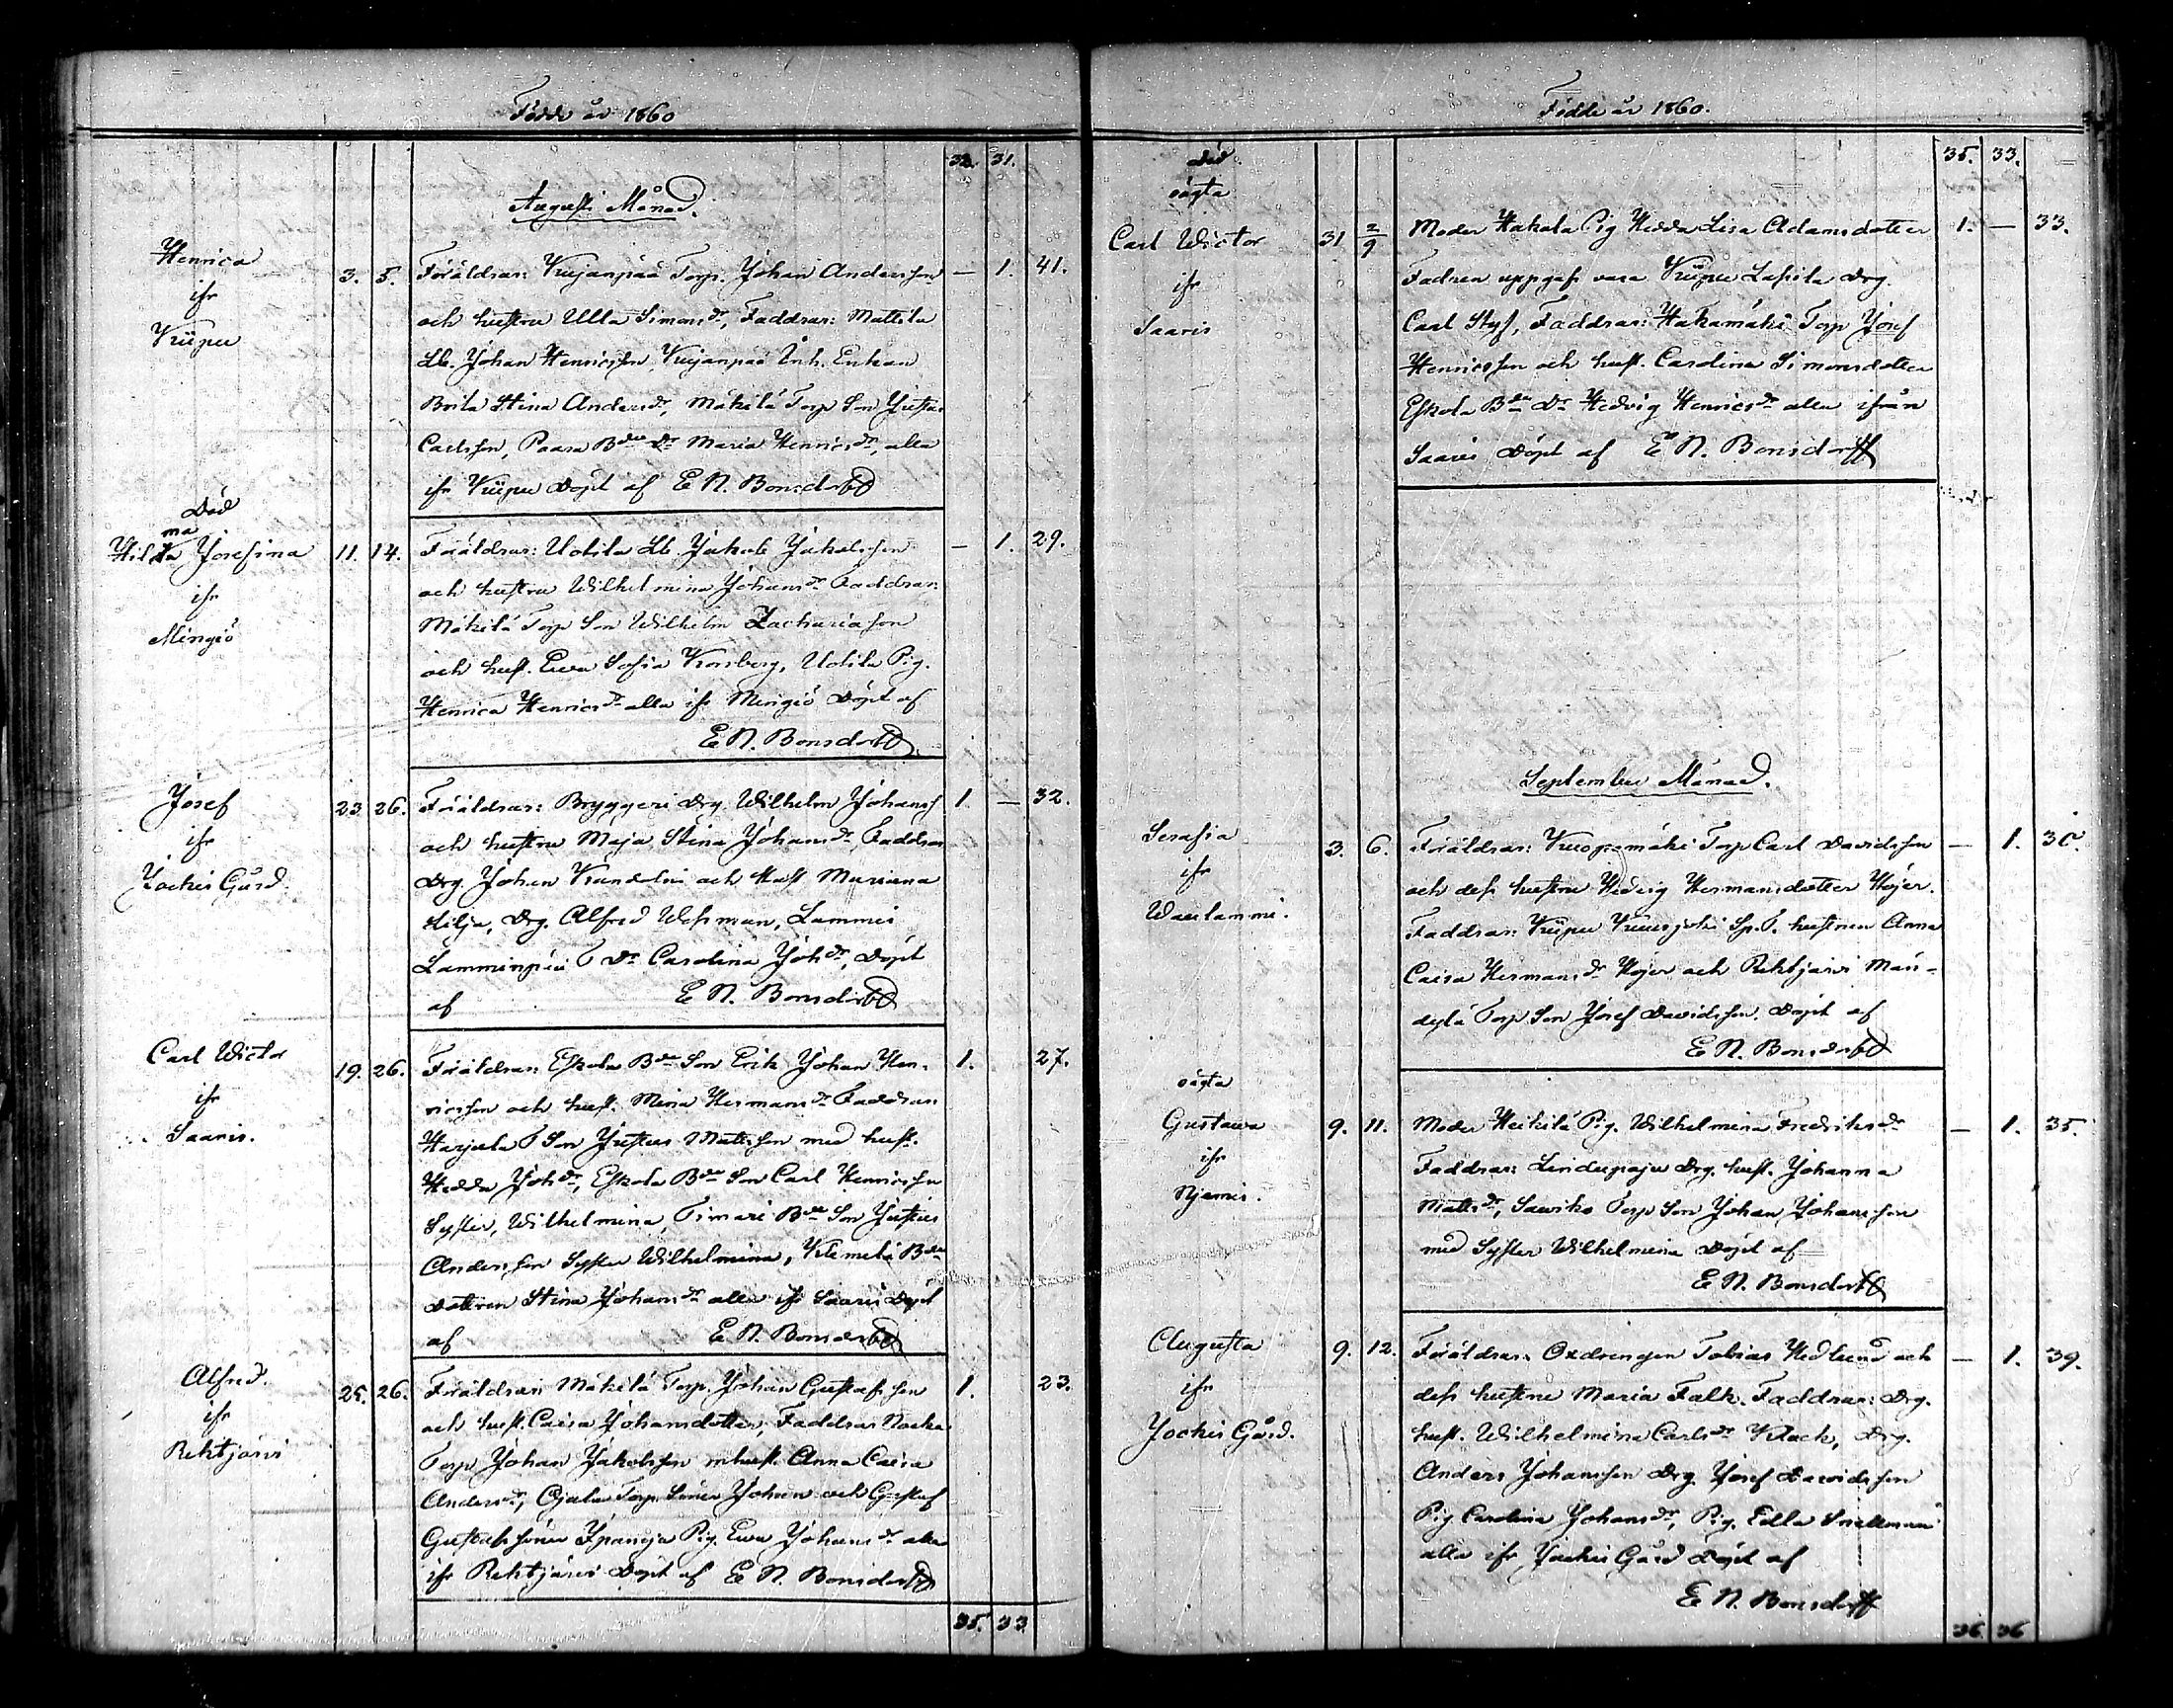 Födde år 1860
32. 31.
Augusti Månad.
Henrica
ifr
Krüpu
3. 5. Föräldrar: Kujanpää Torp. Johan Andersson — 1. 41.
och hustru Ulla Simonsdr, Faddrar: Mattila
Lb. Johan Henricsson, Kujanpää Inh. Enkan
Brita Stina Andersdr, Mäkilä Torp Son Justus
Carlsson, Paara Bde Dr Maria Henricsdr, alla
ifr Krüpu Döpt af E N. Bonsdorff
Död
ma
Hilda Josefina
ifr
Mingiö
11. 14. Föräldrar: Uotila Lb Jakob Jakobsson — 1. 29.
och hustru Wilhelmina Johansdr Faddrar:
Mäkilä Torp Son Wilhelm Zachariasson
och hust. Ewa Sofia Kronberg, Uotila Pig.
Henrica Henricsdr alla ifr Mingiö Döpt af
E N. Bonsdorff
Josef
ifr
Jockis Gård.
23. 26. Föräldrar: Bryggeri Drg. Wilhelm Johanss 1. — 32.
och hustru Maja Stina Johansdr, Faddrar
Drg. Johan Krandolin och Hust Mariana
Lilja, Drg. Alfred Wessman, Lammis
Lamminpää T Dr Carolina Johdr, Döpt
af E N. Bonsdorff
Carl Wictor
ifr
Saaris.
19. 26. Föräldrar: Eskola Bde Son Erik Johan Hen- 1. 27.
ricsson och hust. Mina Hermansdr Faddrar:
Harjula T Son Justus Mattsson med hust.
Hedda Johdr, Eskola Bde Son Carl Henricsson
Syster, Wilhelmina, Timari Bde Son Justus
Andersson Syster Wilhelmina, Klemelä Bde
dotren Stina Johansdr alla ifr Saaris Döpt
af E N. Bonsdorff
Alfred.
ifr
Rehtjärvi
25. 26. Föräldrar: Mäkilä Torp. Johan Gustafsson 1. 23.
och hust. Caisa Johansdotter, Faddrar Norha
Torp Johan Jakobsson m hust. Anna Caisa
Andersdr, Ojala Torp. Söner Johan och Gustaf
Gustafssöner Ypanoja Pig. Ewa Johansdr alla
ifr Rehtjärvi Döpt af E N. Bonsdorff
35. 33
Födde år 1860.
35. 33.
Död
oägta
Carl Wictor
ifr
Saaris
31 2/9 Moder Hakala Pig Hedda Lisa Adamsdotter 1. — 33.
Fadren uppgafs vara Krüpu Lassila Drg.
Carl Styf, Faddrar: Hakamäki Torp Josef
Henricsson och hust. Carolina Simonsdotter
Eskola Bde Dr Hedvig Henricsdr alla ifrån
Saaris Döpt af E N. Bonsdorff
September Månad.
Serafia
ifr
Waulammi.
3. 6. Föräldrar: Kuopomäki Torp Carl Davidsson — 1. 30.
och dess hustru Hedvig Hermansdotter Höjer.
Faddrar: Krüpu Kuusjoki Sp. T. hustrun Anna
Caisa Hermansdr Höjer och Rehtjärvi Män-
dylä Torp. Son Josef Davidsson. Döpt af
E N. Bonsdorff
oägta
Gustava
ifr
Njemis.
9. 11. Moder Heikilä Pig. Wilhelmina Fredriksdr — 1. 35.
Faddrar: Lindupaju Drg. hust. Johanna
Mattsdr, Sawiko Torp Son Johan Johansson
med Syster Wilhelmina Döpt af
E N. Bonsdorff
Augusta
ifr
Jockis Gård.
9. 12. Föräldrar: Oxdrengen Tobias Hedlund och — 1. 39.
dess hustru Maria Falk. Faddrar: Drg.
hust. Wilhelmina Carlsdr Klock, Drg.
Anders Johansson Drg Josef Davidsson
Pig Carolina Johansdr, Pig. Edla Snellman
alla ifr Jockis Gård Döpt af
E N. Bonsdorff
36 36